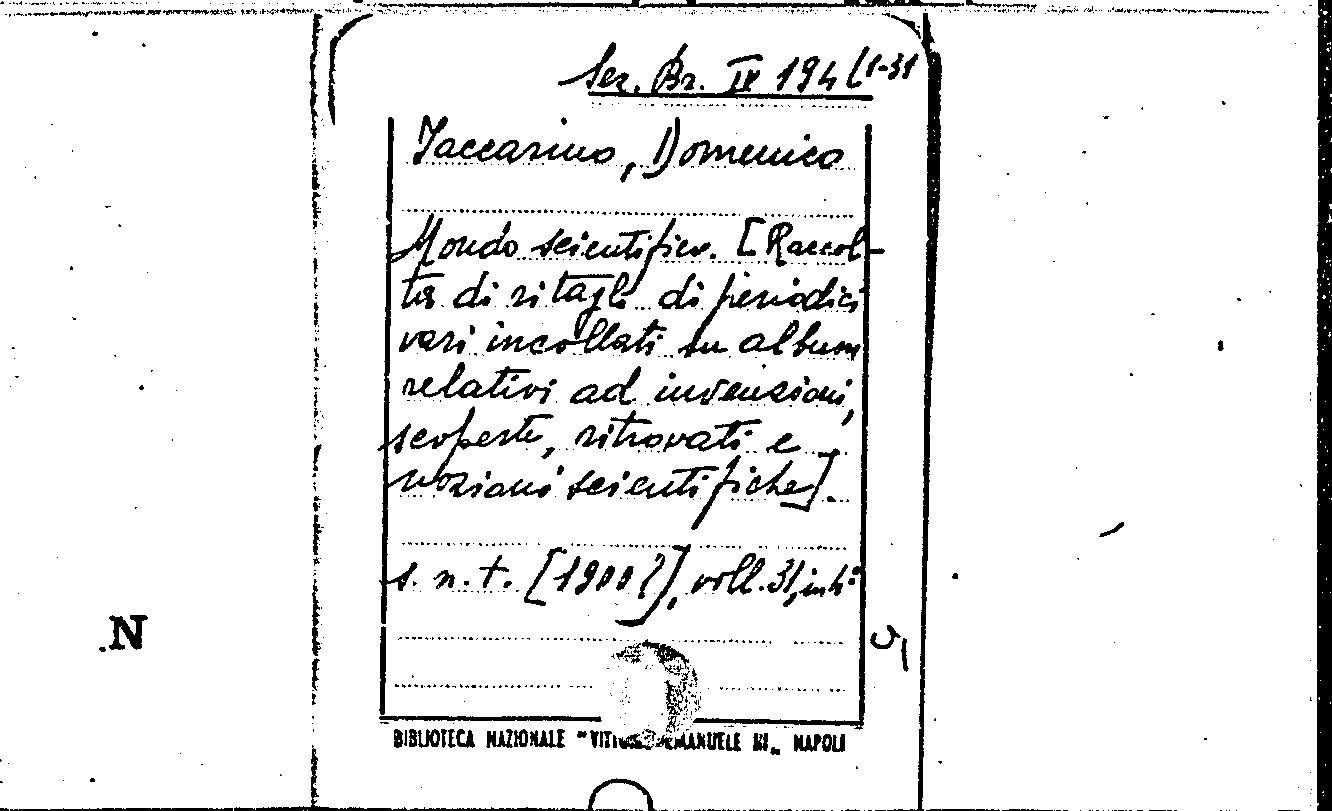 Sez. Br. IX 194 (1-31
Jaccarino, Domenico
Mondo scientifico. [Raccol-
ta di ritagli di periodici
vari incollati su album
relativi ad invenzioni,
scoperte, ritrovati e
nozioni scientifiche].
s. n. t. [1900?], voll. 31, in 4°
BIBLIOTECA NAZIONALE "VITTORIO EMANUELE III„ NAPOLI
N